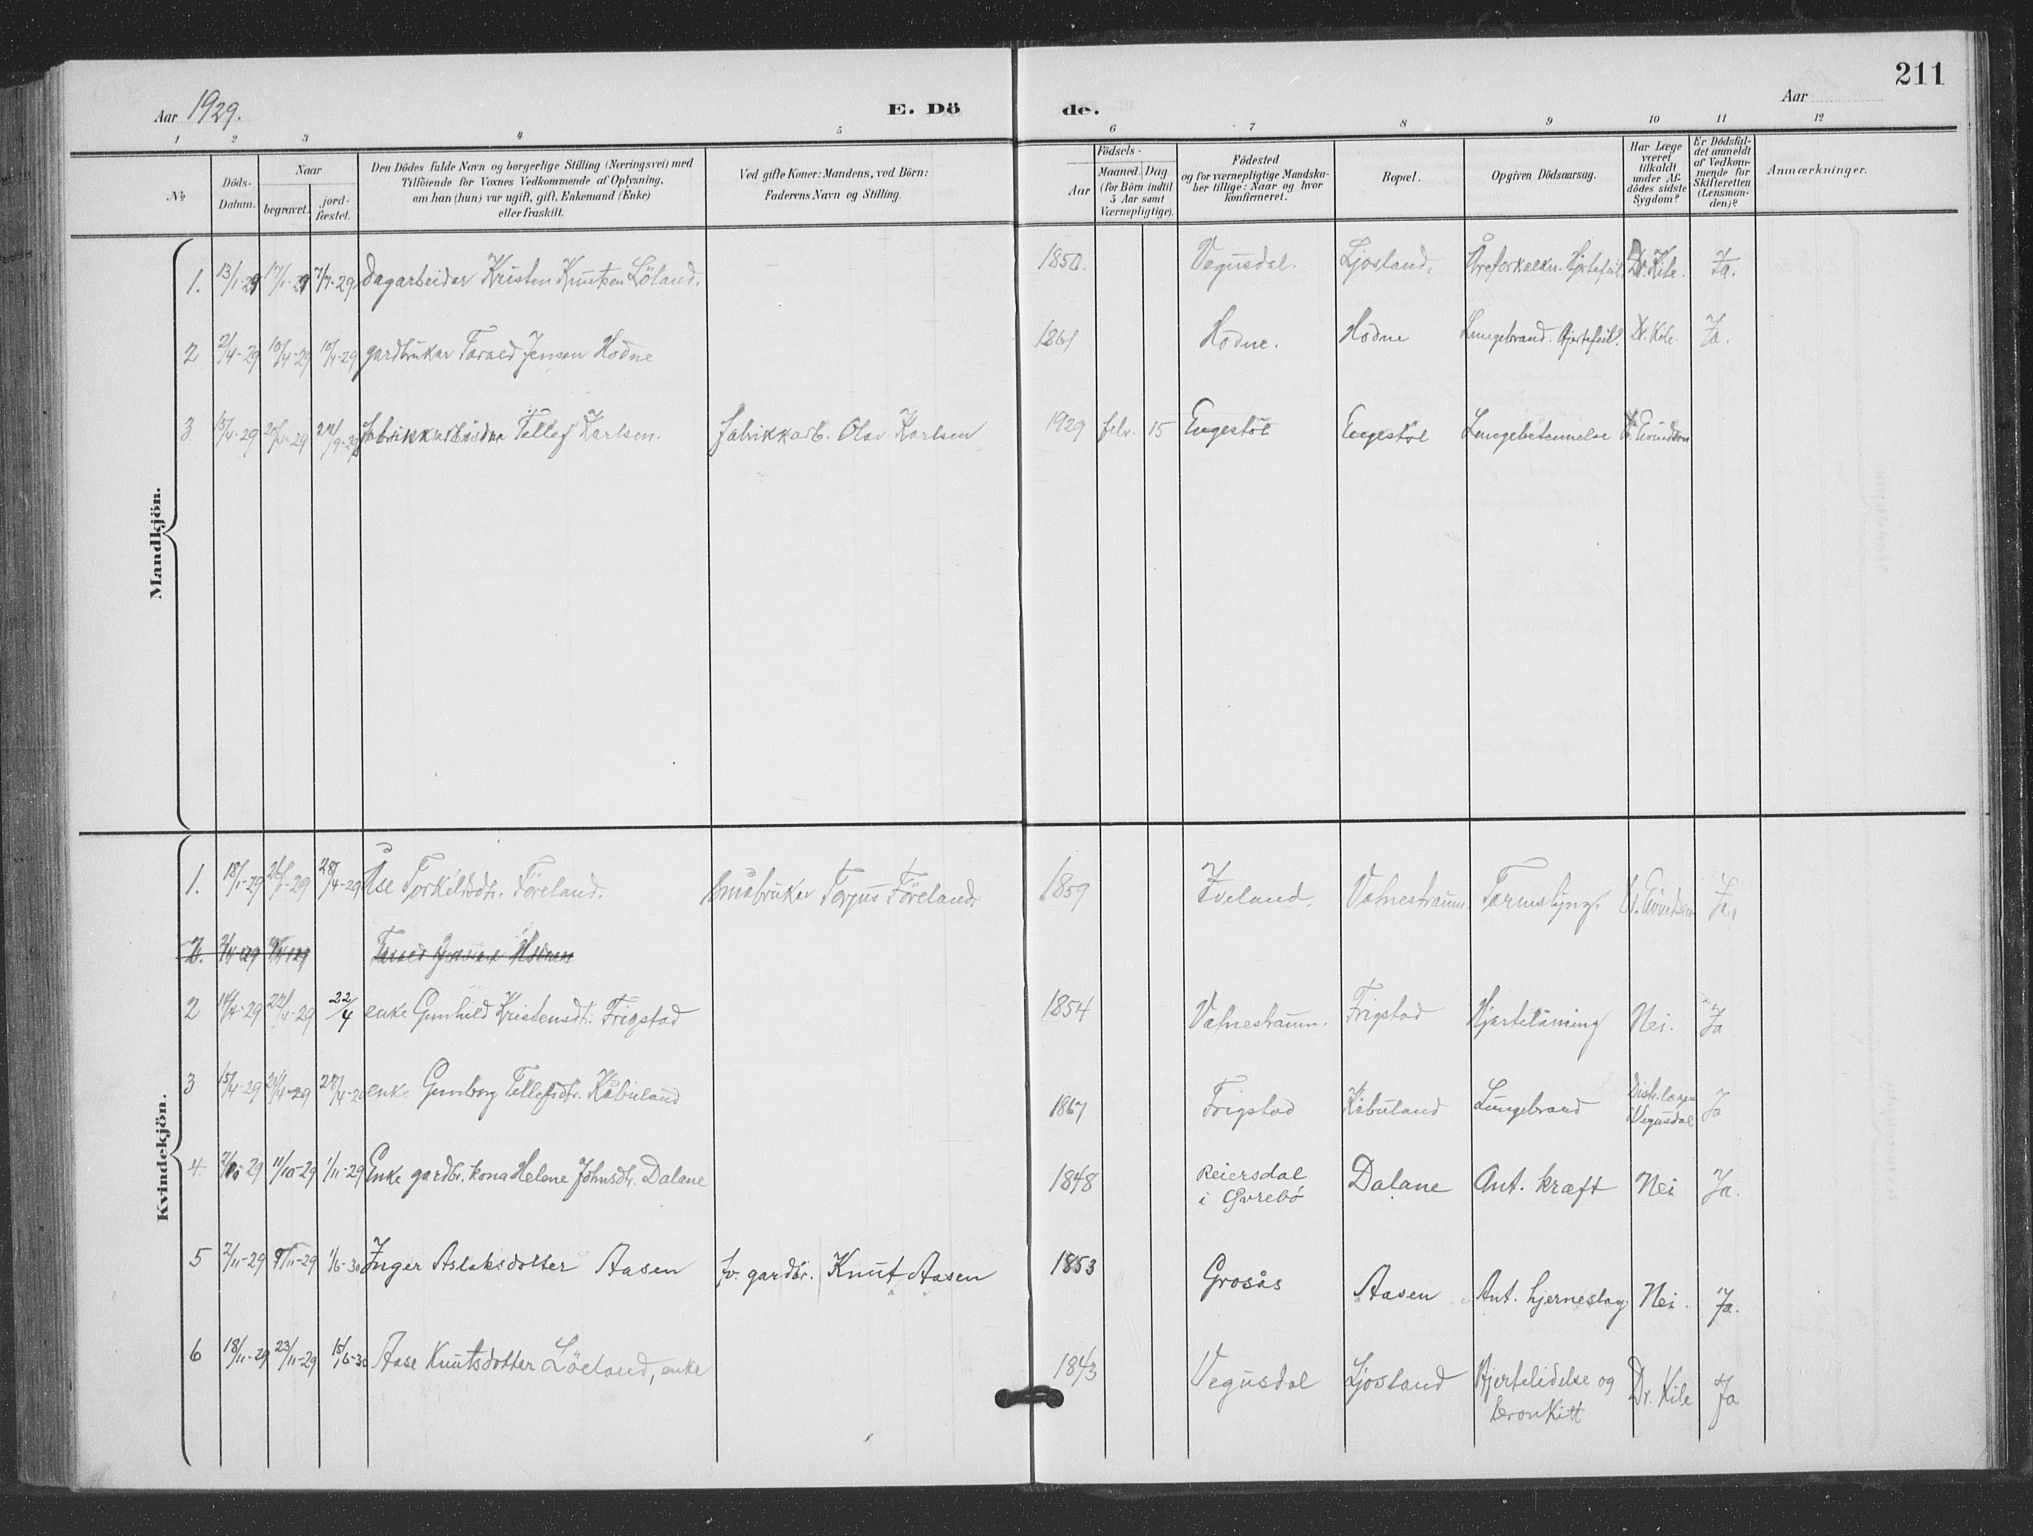 211
Aar 1929.
E. Dö
de.
Aar
1 2 3 4 5 6 7 8 9 10 11 12
No
Döds-
Datum.
Naar
begravet.
jord-
fæstet.
Den Dödes fulde Navn og borgerlige Stilling (Næringsvei) med
Tilföiende for Voxnes Vedkommende af Oplysning,
om han (hun) var ugift, gift, Enkemand (Enke)
eller fraskilt.
Ved gifte Koner: Mandens, ved Börn:
Faderens Navn og Stilling.
Födsels-
Aar
Maaned. Dag
(for Börn indtil
5 Aar samt
Værnepligtige).
Födested
og for værnepligtige Mandska-
ber tillige: Naar og hvor
konfirmeret.
Bopæl.
Opgiven Dödsaarsag.
Har Læge
været
tilkaldt
under Af-
dödes sidste
Sygdom?
Er Dödsfal-
det anmeldt
af Vedkom-
mende for
Skifteretten
(Lensman-
den)?
Anmærkninger.
Mandkjön.
1. 13/1-29 17/1-29 7/4-29 Dagarbeidar Kristen Knutsen Löland. 1850. Vegusdal. Ljosland. Åreforkalkn. Hjertefeil Dr. Kile. Ja.
2 2/4-29 10/4-29 10/4-29 gardbrukar Tarald Jensen Hodne 1861 Hodne. Hodne Lungebrand. Hjertefeil. Dr. Kile. Ja.
3 15/4-29 20/4-29 /9-29 fabrikkarbeidar Tellef Karlsen. fabrikkarb. Olav Karlsen 1929 febr. 15 Engestöl Engestöl Lungebetennelse Dr. Eivindsen
Kvindekjön.
1. 18/1-29 26/1-29 28/4-29 Åse Torkelsdtr. Föreland. småbrukar Torjus Föreland 1859 Iveland. Vatnestraum. Tarmslyng. Dr. Eivindsen Ja.
2. 2/4-29 10/4-29 Tarald Jensen Hodne
2 14/4-29 22/4-29 22/4 enke Gunhild Kristensdtr. Frigstad 1854 Vatnestraum. Frigstad Hjertelåming Nei. Ja
3 15/4-29 24/4-29 28/4-29 enke Gunborg Tellefsdtr. Kåbuland 1867 Frigstad Kåbuland Lungebrand Distr.lægen
i Vegusdal Ja
4. /10-29 11/10-29 1/11-29 Enke gardbr. kona Helene Johnsdtr. Dalane 1848 Reiersdal
i Øvrebö Dalane Ant. kræft Nei Ja.
5 2/11-29 /11-29 1/6-30 Inger Aslaksdotter Aasen fv. gardbr. Knut Aasen 1853 Grosås Aasen Ant. hjerneslag Nei. Ja.
6 18/11-29 23/11-29 15/6-30 Aase Knutsdotter Löland, enke 1843 Vegusdal Ljosland Hjertelidelse og
bronkitt Dr. Kile Ja